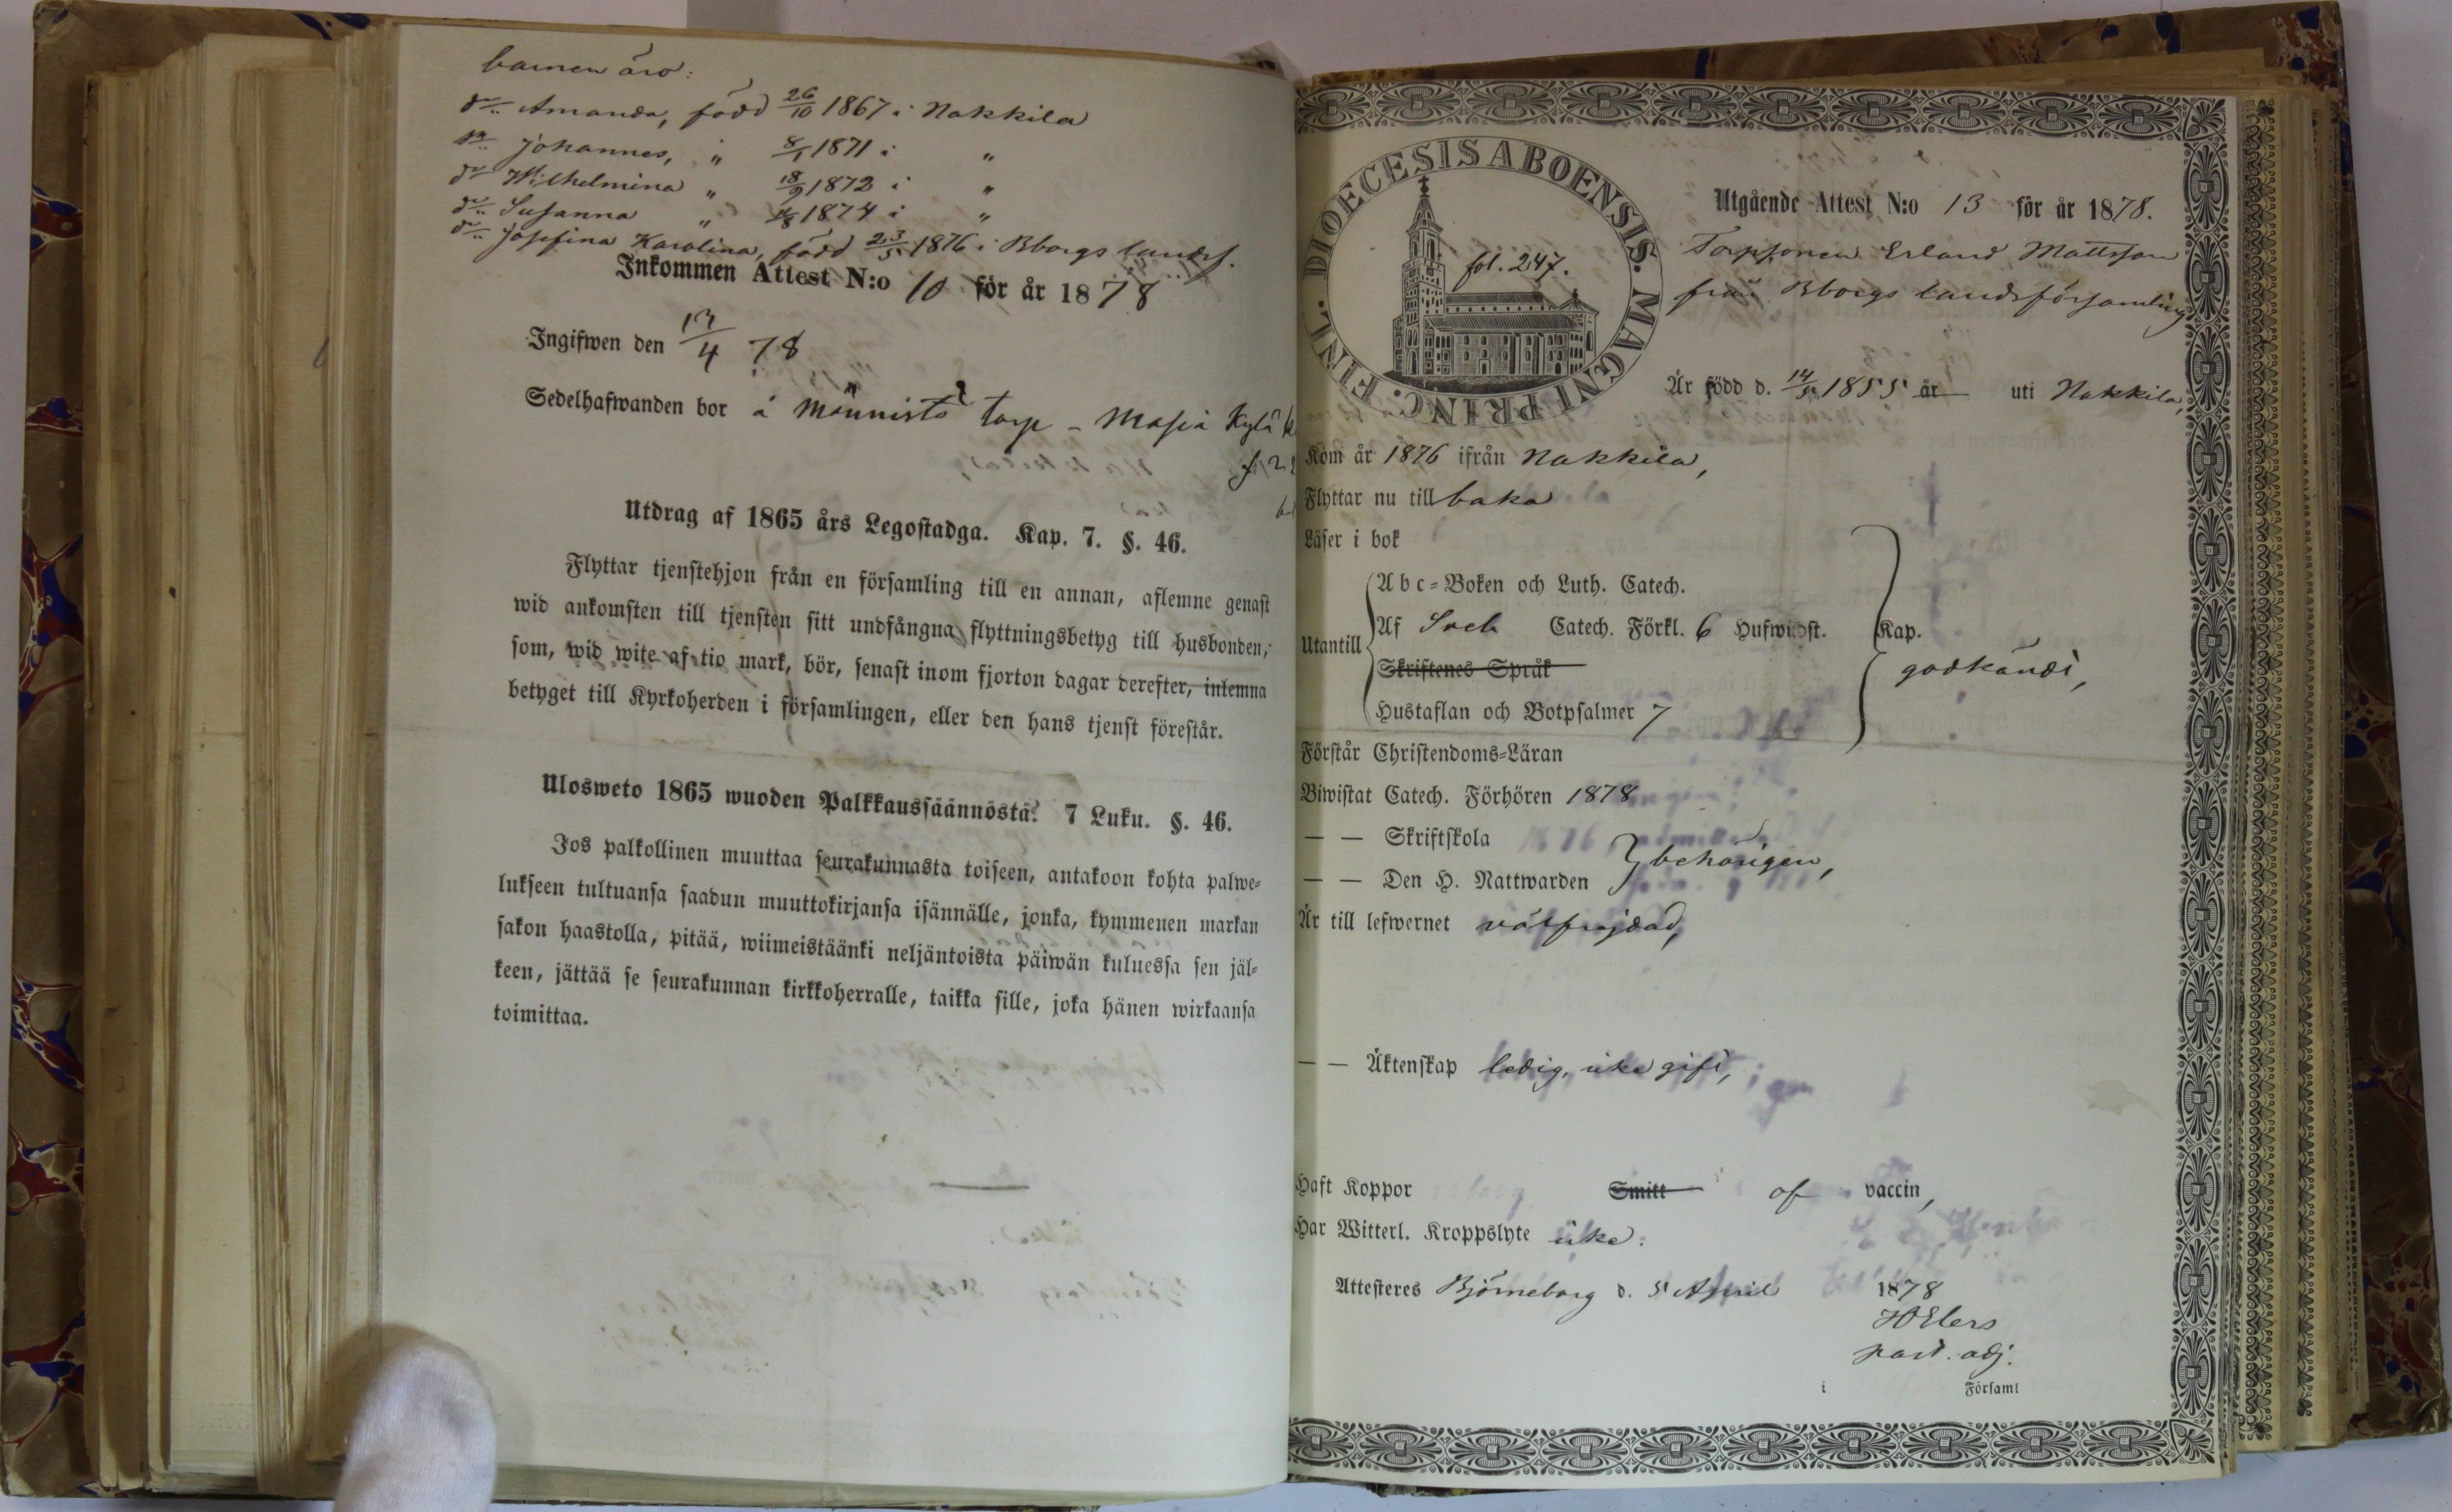 barnen äro:
dr Amanda, född 26/10 1867 i Nakkila
sn Johannes, " 8/1 1871 i "
dr Wilhelmina " 18/9 1872 i "
dr Susanna " 1874 i "
dr Josefina Karolina, född 23/5 1876 i Bborgs landsf.
Inkommen Attest N:o 10 för år 1878
Ingifwen den /4 78
Sedelhafwanden bor å Männistö torp - Masia Kylä
Utdrag af 1865 års Legostadga. Kap. 7. §. 46.
Flyttar tjenstehjon från en församling till en annan, aflemne genast
wid ankomsten till tjensten sitt undfångna flyttningsbetyg till husbonden,
som, wid wite af tio mark, bör, senast inom fjorton dagar derefter, inlemna
betyget till Kyrkoherden i församlingen, eller den hans tjenst förestår.
Ulosweto 1865 wuoden Palkkaussäännöstä. 7 Luku. §. 46.
Jos palkollinen muuttaa seurakunnasta toiseen, antakoon kohta palwe-
lukseen tultuansa saadun muuttokirjansa isännälle, jonka, kymmenen markan
sakon haastolla, pitää, wiimeistäänki neljäntoista päiwän kuluessa sen jäl-
keen, jättää se seurakunnan kirkkoherralle, taikka sille, joka hänen wirkaansa
toimittaa.
DIOECESIS ABOENSIS. MAGNI PRINC. FINL.
fol. 247.
Utgående Attest N:o 13 för år 1878.
Torpsonen Erland Mattsson
från Bborgs landsförsamling
Är född d. 14/5 1855 år uti Nakkila,
Kom år 1876 ifrån Nakkila,
Flyttar nu tillbaka
Läser i bok
Abc-Boken och Luth. Catech.
Utantill Af Sveb Catech. Förkl. 6 Hufwudst. Kap.
Skriftenes Språk
godkändt,
Hustaflan och Botpsalmer 7
Förstår Christendoms-Läran
Biwistat Catech. Förhören 1878
— — Skriftskola
behörigen,
— — Den H. Nattwarden
Är till lefwernet välfrejdad,
— — Äktenskap ledig, icke gift,
Haft Koppor Smitt af vaccin,
Har Witterl. Kroppslyte icke.
Attesteres Björneborg d. 5 April 1878
H Elers
past. adj.
i Församl